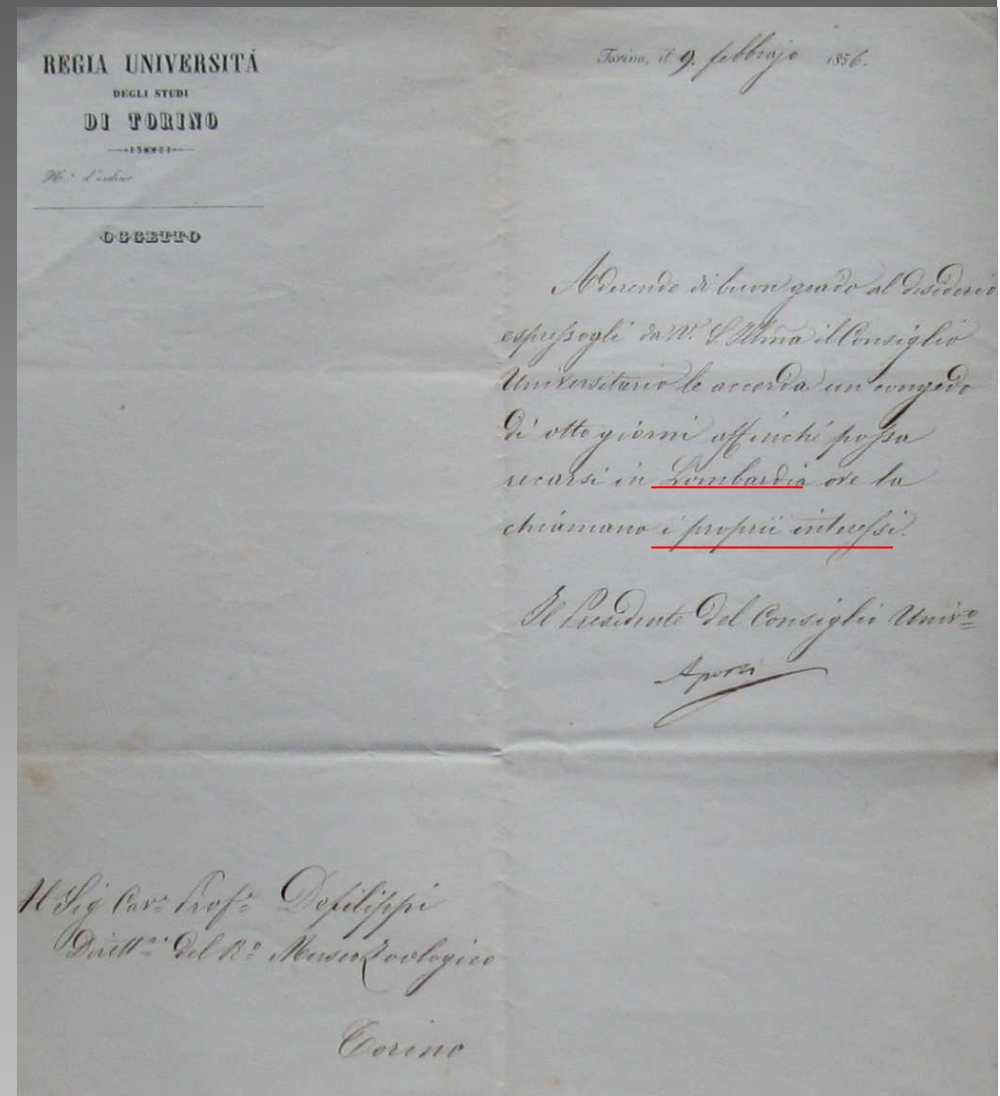 REGIA UNIVERSITÁ
DEGLI STUDI
DI TORINO
N.° d'ordine
OGGETTO
Torino, il 9. febbrajo 1856.
Aderendo di buon grado al desiderio
espressogli da V. S. Illma il Consiglio
Universitario le accorda un congedo
di otto giorni affinché possa
recarsi in Lombardia ove la
chiamano i proprii interessi.
Il Presidente del Consiglio Univ.º
Aporti
Al Sig Cav.e Prof.e Defilippi
Dirett.re del R.º Museo Zoologico
Torino